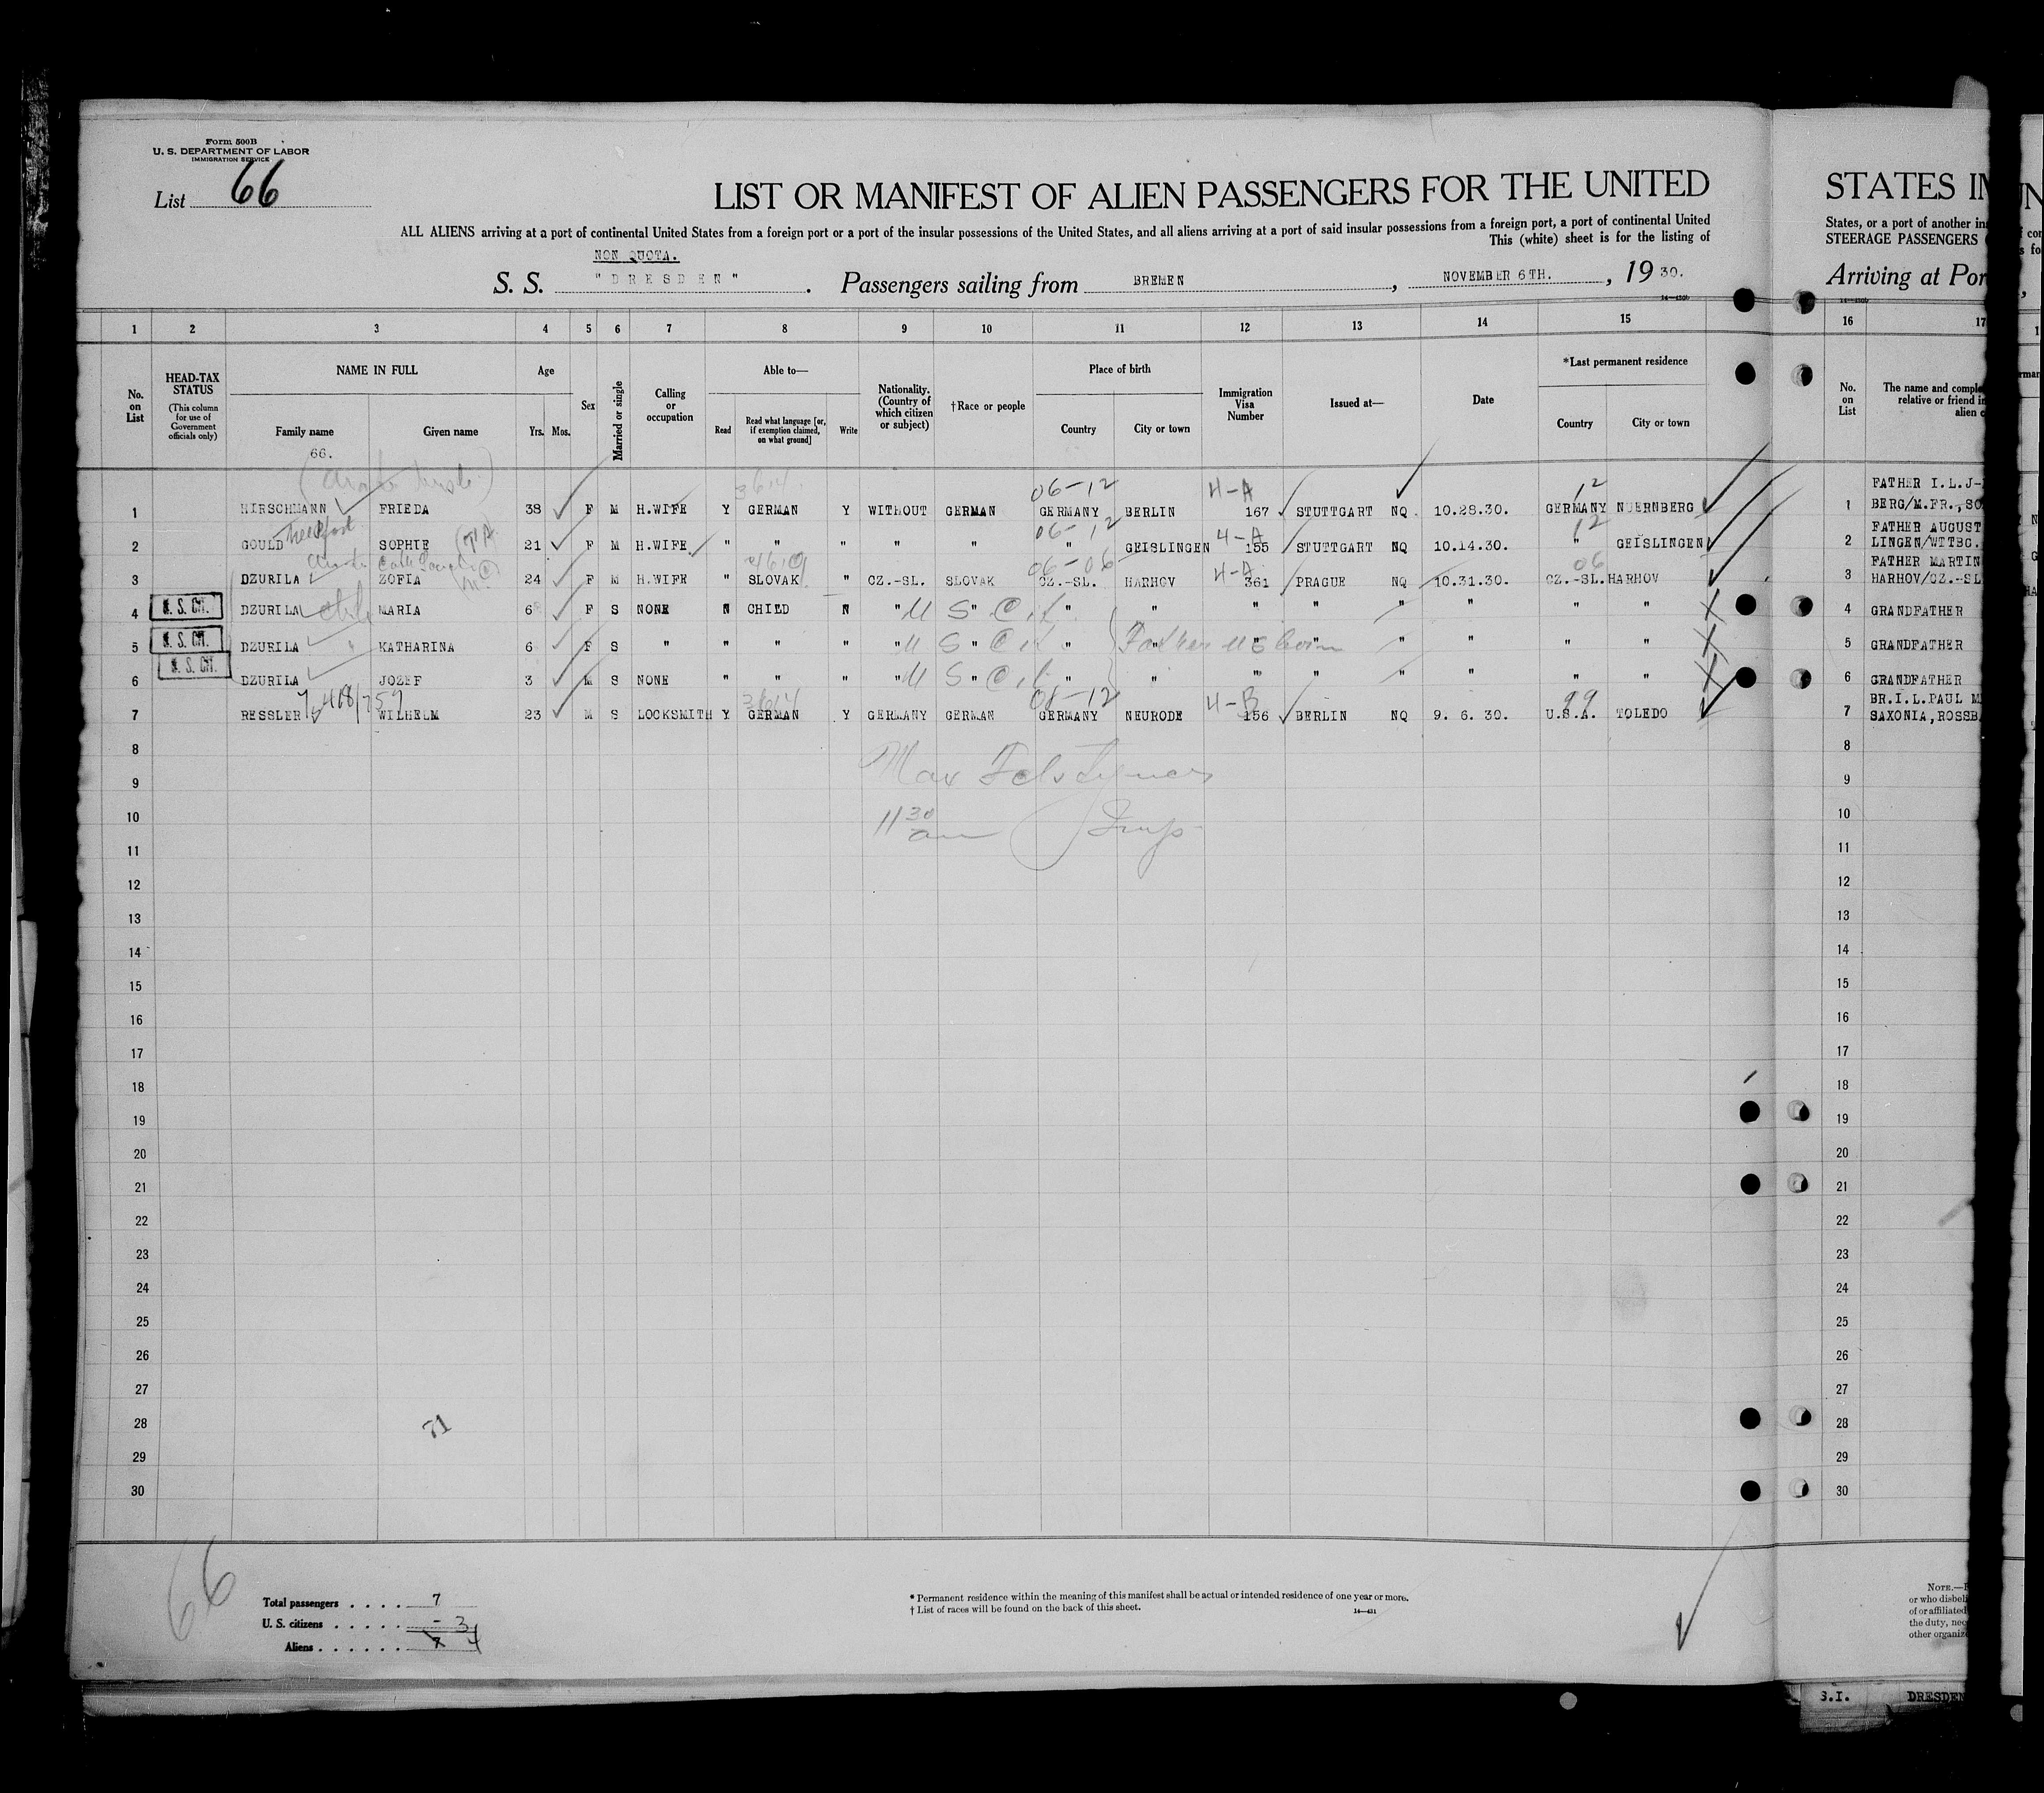 Form 500B
U. S. DEPARTMENT OF LABOR
IMMIGRATION SERVICE
List 66
LIST OR MANIFEST OF ALIEN PASSENGERS FOR THE UNITED
STATES IM
ALL ALIENS arriving at a port of continental United States from a foreign port or a port of the insular possessions of the United States, and all aliens arriving at a port of said insular possessions from a foreign port, a port of continental United
States, or a port of another in
This (white) sheet is for the listing of
STEERAGE PASSENGERS
NON QUOTA.
S. S. "DRESDEN". Passengers sailing from BREMEN, NOVEMBER 6TH., 19 30.
Arriving at Por
1 2 3 4 5 6 7 8 9 10 11 12 13 14 15 16 17
No. on List
HEAD-TAX STATUS
(This column for use of Government officials only)
NAME IN FULL
Family name
Given name
66.
Age
Yrs. Mos.
Sex
Married or single
Calling or occupation
Able to—
Read
Read what language [or, if exemption claimed, on what ground]
Write
Nationality. (Country of which citizen or subject)
†Race or people
Place of birth
Country
City or town
Immigration Visa Number
Issued at—
Date
*Last permanent residence
Country
City or town
No. on List
The name and comple
relative or friend in
alien c
3614 06-12 4-A 12
1 HIRSCHMANN FRIEDA 38 F M H.WIFE Y GERMAN Y WITHOUT GERMAN GERMANY BERLIN 167 STUTTGART NQ 10.28.30. GERMANY NUERNBERG 1 FATHER I.L.J-
BERG/M.FR.,SO
06-12 4-A 12
2 GOULD SOPHIE 21 F M H.WIFE " " " " " " GEISLINGEN 155 STUTTGART NQ 10.14.30. " GEISLINGEN 2 FATHER AUGUST
LINGEN/WTTBG.
06-06 4-A 06
3 DZURILA ZOFIA 24 F M H.WIFE " SLOVAK " CZ.-SL. SLOVAK CZ.-SL. HARHOV 361 PRAGUE NQ 10.31.30. CZ.-SL. HARHOV 3 FATHER MARTIN
HARHOV/CZ.-SL
4 DZURILA MARIA 6 F S NONE N CHILD N " U S " Cit. " " " " " " " " 4 GRANDFATHER
5 DZURILA " KATHARINA 6 F S " " " " " U S " Cit " Father US born " " " " " " 5 GRANDFATHER
6 DZURILA JOZEF 3 M S NONE " " " " U S " Cit " " " " " " " " 6 GRANDFATHER
3614 4-B 99
7 RESSLER WILHELM 23 M S LOCKSMITH Y GERMAN Y GERMANY GERMAN GERMANY NEURODE 156 BERLIN NQ 9. 6. 30. U.S.A. TOLEDO 7 BR.I.L.PAUL M
SAXONIA,ROSSB
8 8
9 9
10 11 30 am Insp 10
11 11
12 12
13 13
14 14
15 15
16 16
17 17
18 18
19 19
20 20
21 21
22 22
23 23
24 24
25 25
26 26
27 27
28 71 28
29 29
30 30
66
Total passengers . . . . 7
U. S. citizens . . . . . – 3
Aliens . . . . . . 7 4
* Permanent residence within the meaning of this manifest shall be actual or intended residence of one year or more.
† List of races will be found on the back of this sheet.
14—431
NOTE.—
or who disbeli
of or affiliated
the duty, nec
other organiz
S.I. DRESDEN